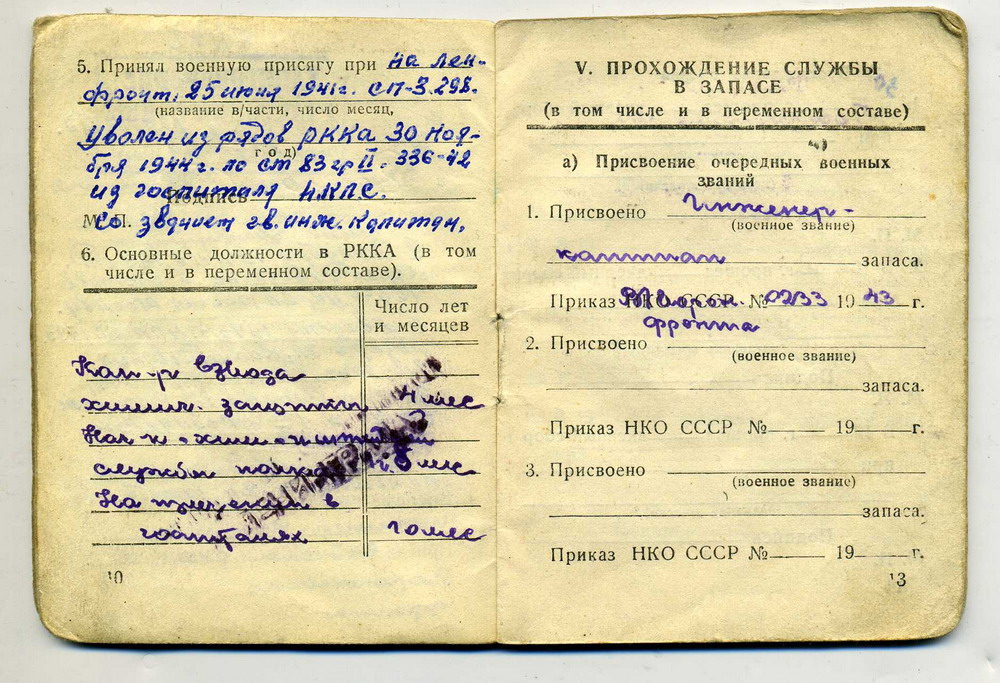 5. Принял военную присягу при на Лен-
фронт. 25 июля 1941г. СП-3.298.
(название в/части, число месяц,
Уволен из рядов РККА 30 Ноя-
год)
бря 1944 г. по ст 83 гр II. 336-42
из госпиталя НКПС.
Подпись
М. П. Со званием гв. инж. Капитан.
6. Основные должности в РККА (в том
числе и в переменном составе).
Число лет
и месяцев
Ком-р взвода
химич. защиты 4 мес
Нач-к хим
службы полка мес
На излечении в
госпиталях 10 мес
10
V. ПРОХОЖДЕНИЕ СЛУЖБЫ
В ЗАПАСЕ
(в том числе и в переменном составе)
а) Присвоение очередных военных
званий
1. Присвоено Инженер-
(военное звание)
капитан запаса.
Приказ НКО СССР № 0233 1943 г.
фронта
2. Присвоено
(военное звание)
запаса.
Приказ НКО СССР № 19 г.
3. Присвоено
(военное звание)
запаса.
Приказ НКО СССР № 19 г.
13